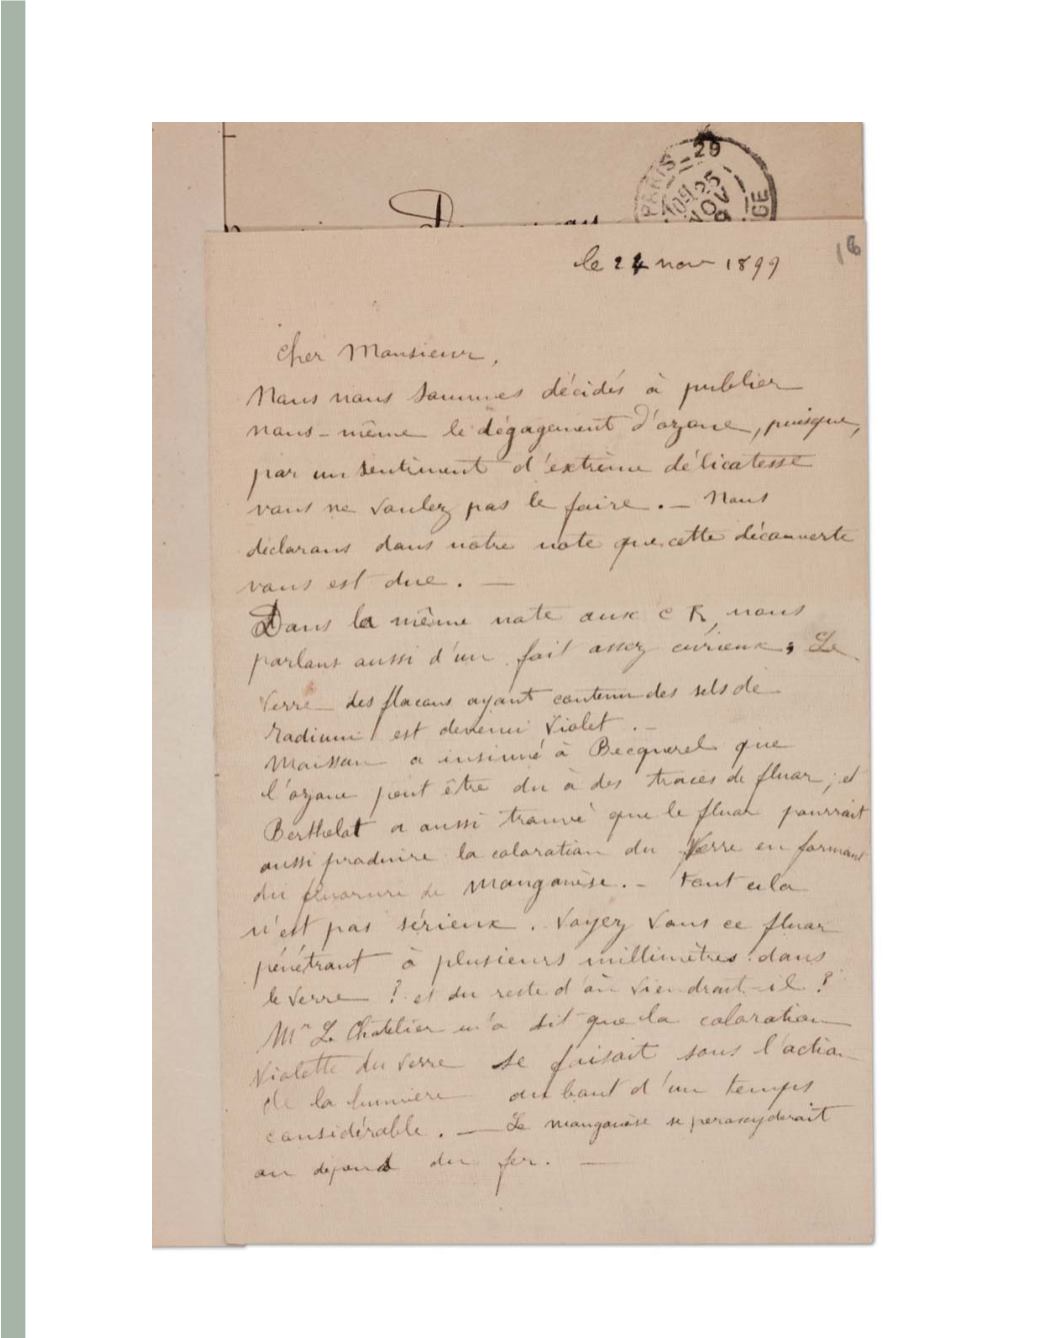 PARIS_29
25
NOV
le 24 nov 1899
16
Cher Monsieur,
Nous nous sommes décidés à publier
nous-même le dégagement d'ozone, puisque,
par un sentiment d'extrème délicatesse
vous ne voulez pas le faire. _ Nous
déclarons dans notre note que cette découverte
vous est due. _
Dans la même note aux C R, nous
parlons aussi d'un fait assez curieux, Le
verre des flacons ayant contenu des sels de
radium est devenu violet. _
Moissan a insinué à Becquerel que
l'ozone peut être du à des traces de fluor, et
Berthelot a aussi trouvé que le fluor pourrait
aussi produire la coloration du Verre en formant
du fluorure de manganèse. _ Tout cela
n'est pas sérieux. Voyez vous ce fluor
pénétrant à plusieurs millimètres dans
le verre ? et du reste d'où viendrait-il ?
Mr Le Chatelier m'a dit que la coloration
violette du verre se faisait sous l'action
de la lumière au bout d'un temps
considérable. _ Le manganèse se peroxyderait
au dépend du fer. _